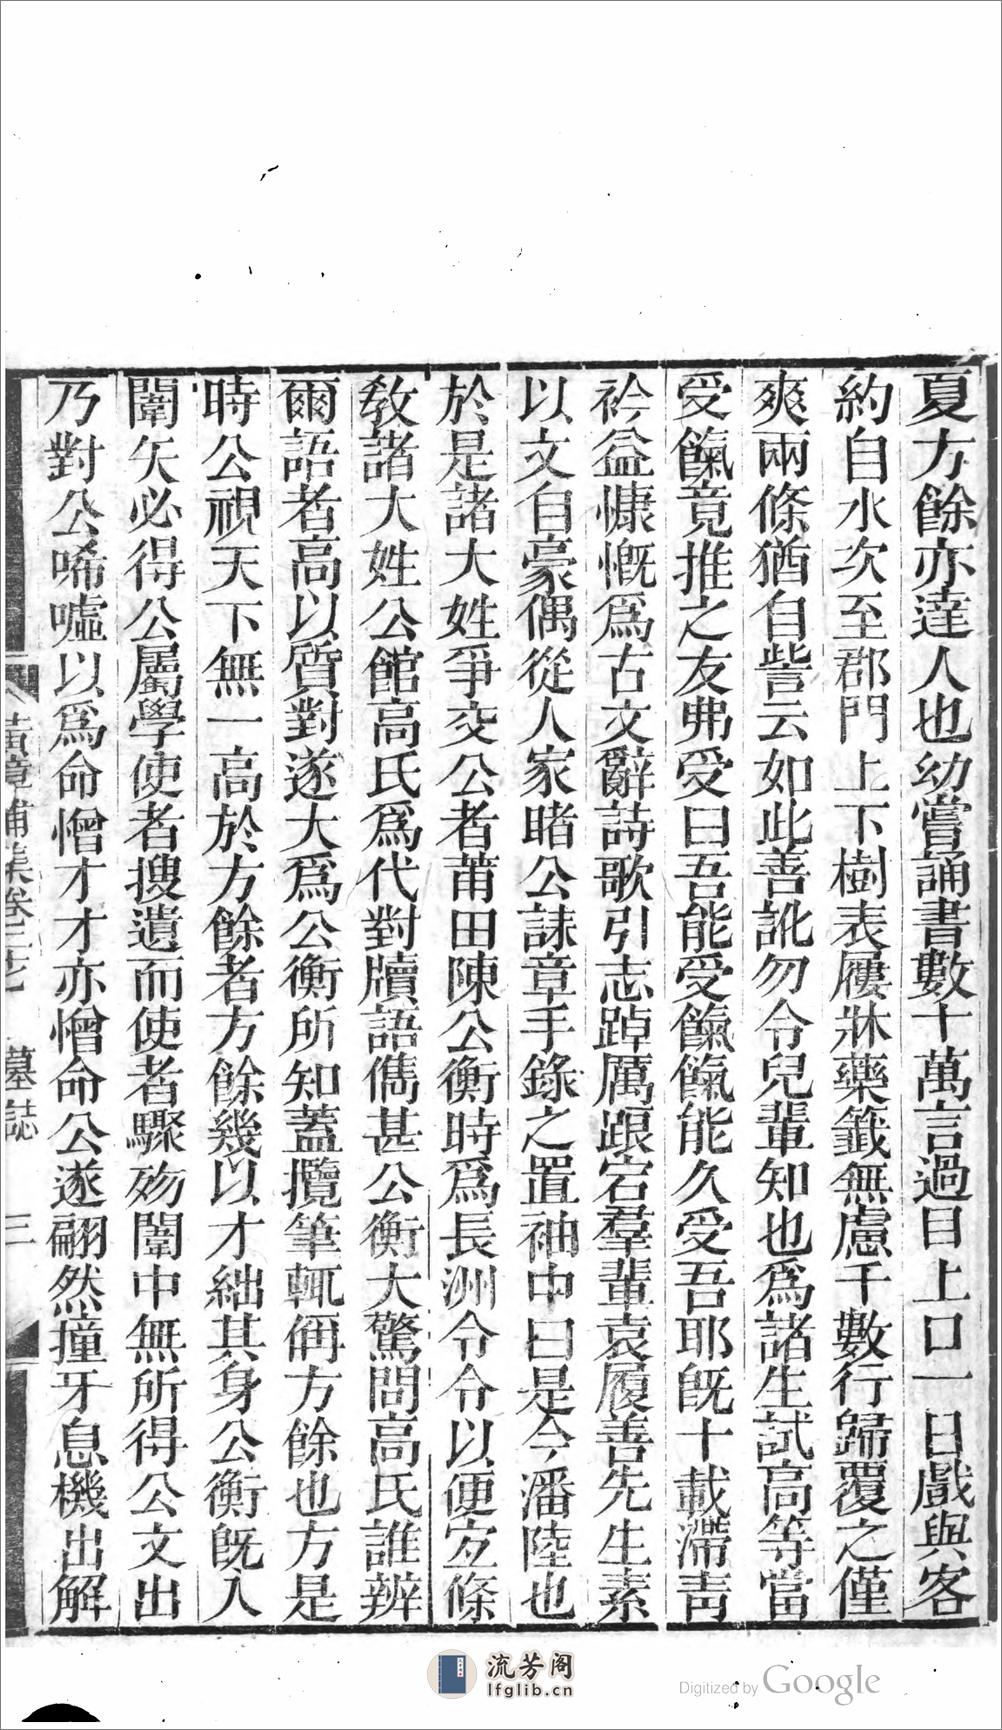 夏方餘亦達人也幼嘗誦書數十萬言過目上口一日戲與客
約自水次至郡門上下樹表屨牀藥籤無慮千數行歸覆之僅
爽兩條猶自訾云如此善訛勿令兒輩知也爲諸生試高等當
受餼竟推之友弗受曰吾能受餼餼能久受吾耶旣十載滯靑
衿益慷慨爲古文辭詩歌引志踔厲踉宕羣輩袁履善先生素
以文自豪偶從人家睹公誄章手錄之置袖中曰是今潘陸也
於是諸大姓爭交公者莆田陳公衡時爲長洲令令以便宜條
敎諸大姓公館高氏爲代對牘語儁甚公衡大驚問高氏誰辨
爾語者高以質對遂大爲公衡所知蓋攬筆輒偁方餘也方是
時公視天下無一高於方餘者方餘幾以才絀其身公衡旣入
闈矢必得公屬學使者搜遺而使者驟殇闈中無所得公文出
乃對公唏噓以爲命憎才才亦憎命公遂翩然撞牙息機出解
黃章甫集卷三七 墓誌 三
流芳阁
lfglib.cn
Digitized by Google